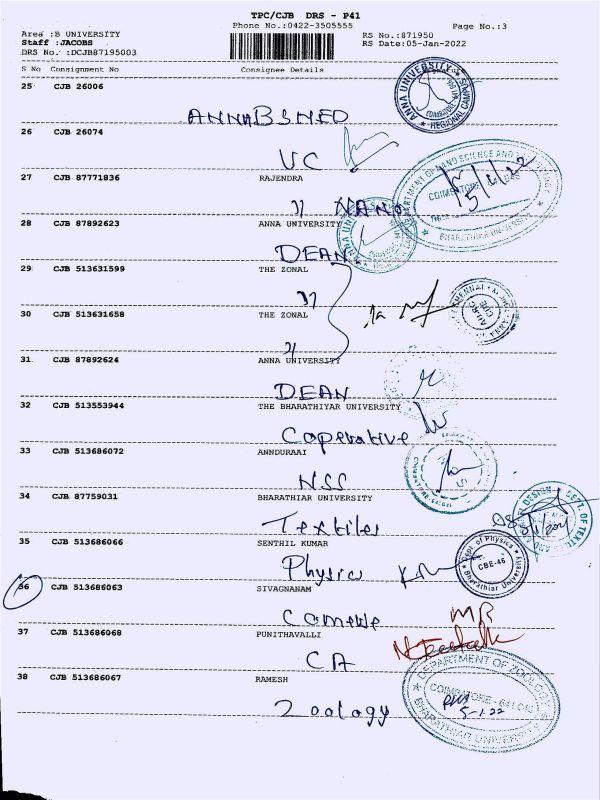 TPC/CJB DRS - P41
Phone No.:0422-3505555
Page No.:3
Area :B UNIVERSITY
Staff :JACOBS
DRS No. :DCJB87195003
RS No.:871950
RS Date:05-Jan-2022
S No Consignment No Consignee Details
25 CJB 26006
ANNABSNED
26 CJB 26074
VC
27 CJB 87771836 RAJENDRA
NANO
28 CJB 87892623 ANNA UNIVERSITY
DEAN
29 CJB 513631599 THE ZONAL
30 CJB 513631658 THE ZONAL
31 CJB 87892624 ANNA UNIVERSITY
DEAN
32 CJB 513553944 THE BHARATHIYAR UNIVERSITY
Coperative
33 CJB 513686072 ANNDURAAI
NSS
34 CJB 87759031 BHARATHIAR UNIVERSITY
Textiles
35 CJB 513686066 SENTHIL KUMAR
Physics
36 CJB 513686063 SIVAGNANAM
37 CJB 513686068 PUNITHAVALLI
CA
38 CJB 513686067 RAMESH
Zoology
ANNA UNIVERSITY
REGIONAL CAMPUS
COIMBATORE
DEPARTMENT OF NANO SCIENCE AND
BHARATHIAR UNIVERSITY
5/1/22
Dept. of Physics
CBE-46
Bharathiar University
MR
DEPARTMENT OF ZOOLOGY
COIMBATORE - 641 046
5-1-22
BHARATHIAR UNIVERSITY